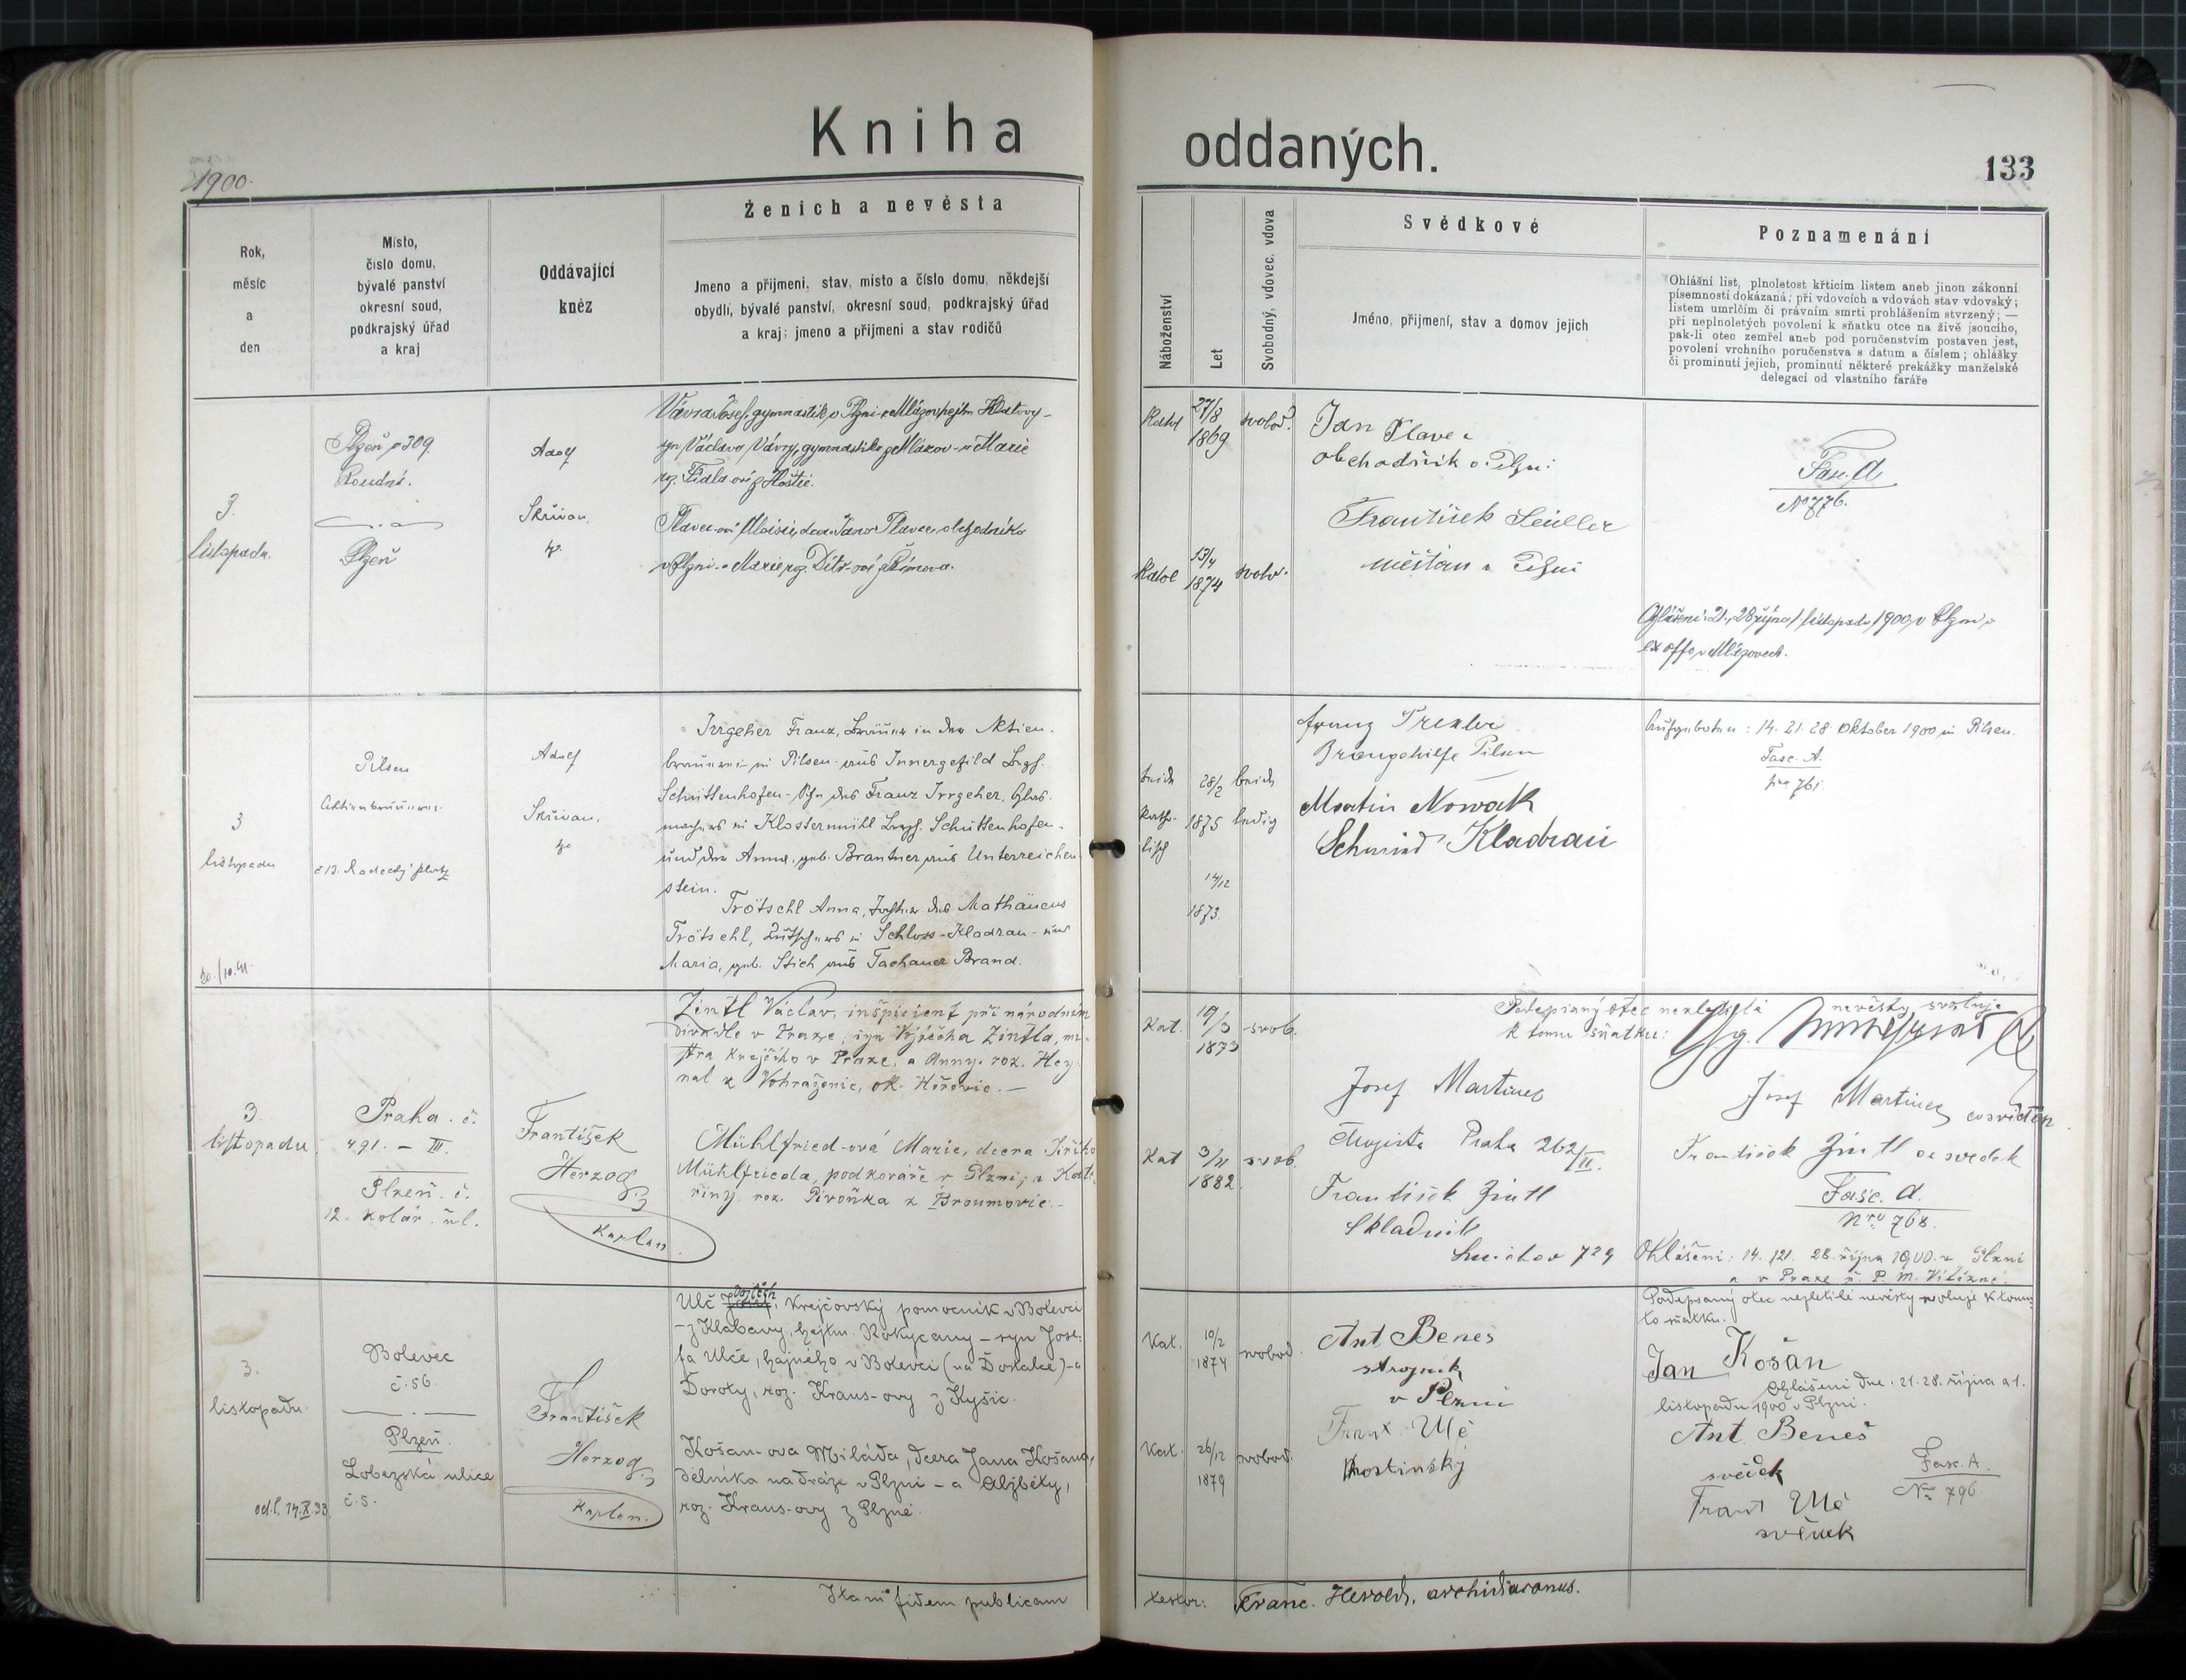 Kniha oddaných.
1900.
133
Rok,
měsíc
a
den
Místo,
číslo domu,
bývalé panství
okresní soud,
podkrajský úřad
a kraj
Oddávající
kněz
Ženich a nevěsta
Jmeno a přijmeni, stav, misto a číslo domu, někdejší
obydlí, bývalé panství, okresní soud, podkrajský úřad
a kraj; jmeno a přijmeni a stav rodičů
Náboženství
Let
Svobodný, vdovec, vdova
Svědkové
Jméno, přijmení, stav a domov jejich
Poznamenání
Ohlášní list, plnoletost křticím listem aneb jinou zákonní
písemností dokázaná; při vdovcích a vdovách stav vdovský;
listem umrlčím či právním smrti prohlášením stvrzený; —
při neplnoletých povolení k sňatku otce na živě jsoucího,
pak-li otec zemřel aneb pod poručenstvím postaven jest,
povolení vrchního poručenstva s datum a číslem; ohlášky
či prominutí jejich, prominutí některé prekážky manželské
delegací od vlastního faráře
3.
listopadu.
Plzeň 309.
Roudná.
Plzeň
Adolf
Skřivan,
Vávra Josef, gymnastik v Plzni
syn Václava Vávry, gymnastika
roz.
Plavec-ová Aloisie, dcera Jana Plavce, obchodníka
v Plzni a Marie, roz.
Kathol
27/8
1869
svobod.
Kathol
13/4
1874
svobod.
Jan Plavec
obchodník v Plzni
František Seidler
měšťan v Plzni
Fasc. A
No 776.
Ohlášeni: 21., 28 října 1. listopadu 1900 v Plzni a
ex offo v Mlázovech.
3
listopadu
20./10.41.
Pilsen
č 12. Radecký platz
Adolf
Skřivan,
Irrgeher Franz, Bräuer in der Aktien-
brauerei in Pilsen aus Innergefild Bezh.
Schüttenhofen - Sohn des Franz Irrgeher, Glas-
machers in Klostermühl Bezh. Schüttenhofen -
und der Anna, geb. Brantner aus Unterreichen-
stein.
Trötschl Anna, Tochter des Mathäus
Trötschl, Kutschers in Schloss-Kladrau - und
Maria, geb. Stich aus Tachauer Brand.
beide
katho-
lisch
28/2
1875
14/12
1873.
beide
ledig
Franz Trexler
Braugehilfe Pilsen
Martin Nowak
Schmied Kladrau
Aufgeboten: 14. 21. 28 Oktober 1900 in Pilsen.
Fasc. A.
Nro 761
3.
listopadu.
Praha. č.
491. — III.
Plzeň. č.
12. Kolár. ul.
František
Herzog
Kaplan.
Zintl Václav, inšpicient při národním
divadle v Praze, syn Vojtěcha Zintla, mi-
stra krejčího v Praze, a Anny roz. Hey-
nal z Vohrazenic, ok. Hořovic. —
Mühlfried-ová Marie, dcera Jiřího
Mühlfrieda, podkováře v Plzni, a Kate-
řiny roz. Pivoňka z Broumovic. -
Kat.
19/3
1873
svob.
Kat
3/11
1882.
svob.
Podepsaný otec nezletilé nevěsty svoluje
k tomu sňatku:
Josef Martinec
Praha 262/II.
František Zintl
Skladník
Smíchov 729
Josef Martinec co svědek
František Zintl co svědek
Fasc. A.
Nro 768.
Ohlášeni: 14. 21. 28. října 1900. v Plzni
a v Praze u P. M. Vítězné.
3.
listopadu.
Bolevec
č. 56.
Plzeň.
Lobezská ulice
č. 5.
od.l. 14.X.33
František
Herzog
Kaplan.
Ulč Vojtěch, krejčovský pomocník v Bolevci
- z Klabavy, hejtm. Rokycany - syn Jose-
fa Ulče, hajného v Bolevci (na Doškalce) - a
Doroty, roz. Kraus-ovy z Kyšic.
Košan-ova Miláda, dcera Jana Košana,
dělníka na dráze v Plzni - a Alžběty,
roz. Kraus-ovy z Plzně.
Kat.
10/2
1874
svobod.
Kat.
26/12
1879
svobod.
Ant Beneš
strojník
v Plzni
Frant Ulč
hostinský
Podepsaný otec nezletilé nevěsty svoluje k tomu-
to sňatku.
Jan Košan
Ohlášeni dne: 21. 28. října a 1.
listopadu 1900 v Plzni.
Ant. Beneš
svědek
Frant Ulč
svědek
Fasc. A.
Nro 796.
Itam fidem publicam
testor: Franc. Herold, archidiaconus.